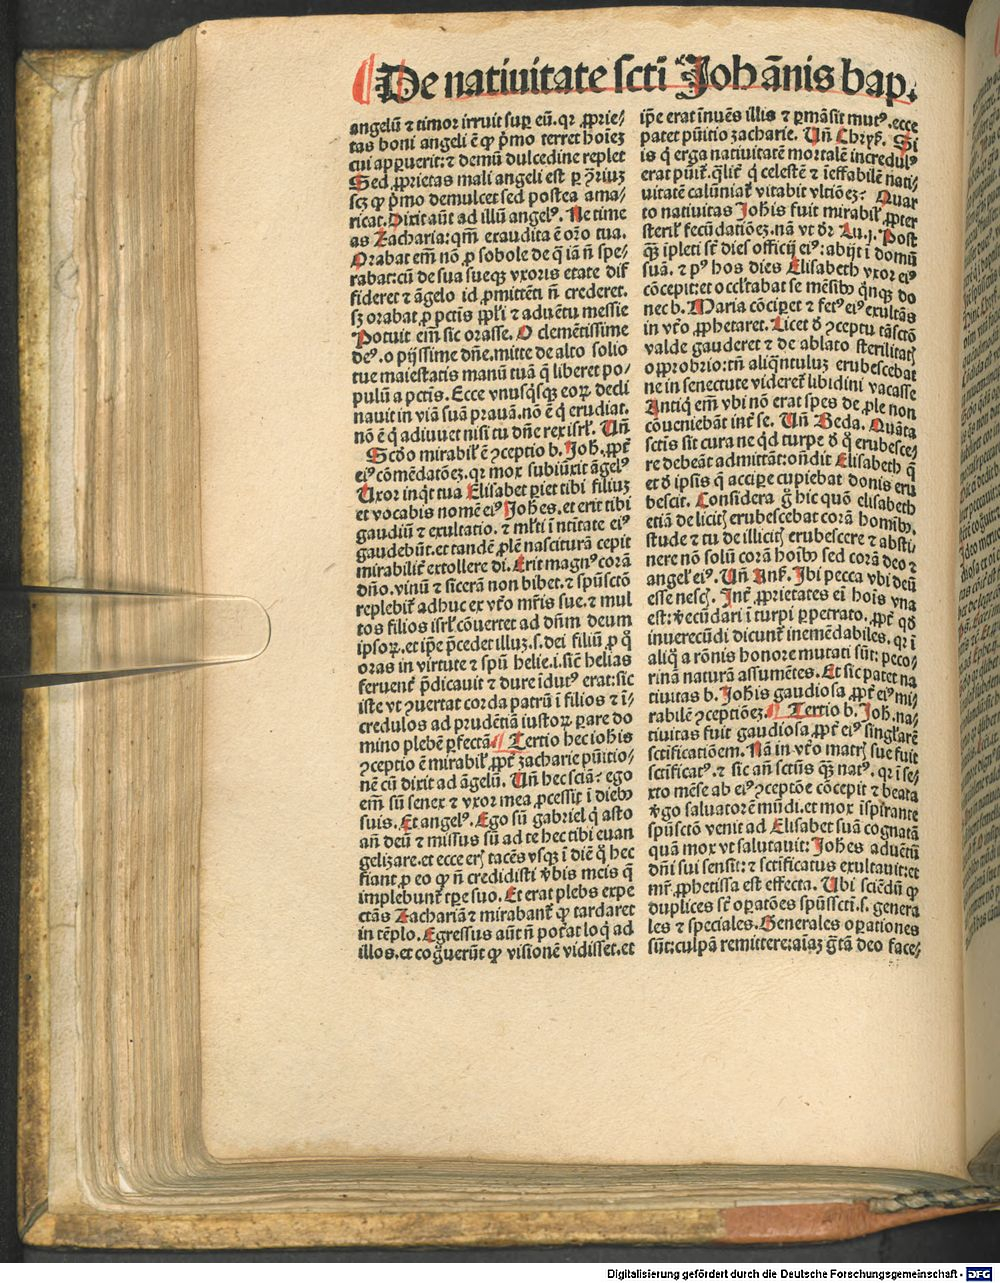 De natiuitate scti Johãnis bap.
angelũ ⁊ timor irruit suꝑ eũ. qꝛ ꝓprie⸗
tas boni angeli ẽ ꝙ pͥmo terret hoĩez
cui apꝑuerit: ⁊ demũ dulcedine replet
Sed ꝓprietas mali angeli est ꝑ ꝯriuz
scꝫ ꝙ pͥmo demulcet sed postea ama⸗
ricat. Dixit aũt ad illũ angelꝰ. Ne time
as Zacharia: qm̃ exaudita ẽ oꝛo tua.
Orabat em̃ nõ ꝓ sobole de q̃ iã ñ spe⸗
rabat: cũ de sua sueqꝫ vxoris etate dif
fideret ⁊ ãgelo id ꝓmittẽti ñ crederet.
sꝫ orabat ꝓ pctis ppl̓i ⁊ aduẽtu messie
Potuit em̃ sic orasse. O clemẽtissime
deꝰ. o pijssime dñe. mitte de alto solio
tue maiestatis manũ tuã q̃ liberet po⸗
pulũ a pctis. Ecce vnusqͥsqꝫ eoꝝ decli
nauit in viã suã prauã. nõ ẽ qͥ erudiat.
nõ ẽ qͥ adiuuet nisi tu dñe rex isrl̓. Uñ
Scd̓o mirabil̓ ẽ ꝯceptio b. Joh. ꝓpt̓
eiꝰ cõmẽdatõeꝫ. qꝛ mox subiũxit ãgelꝰ
Uxor inqͥt tua Elisabet pariet tibi filiuz
et vocabis nomẽ eiꝰ Johẽs. et erit tibi
gaudiũ ⁊ exultatio. ⁊ ml̓ti ĩ ntĩtate eiꝰ
gaudebũt. et tandẽ ꝓlẽ nasciturã cepit
mirabilit̓ extollere di. Erit magnꝰ corã
dño. vinũ ⁊ sicerã non bibet. ⁊ spũsctõ
replebit̓ adhuc ex vt̓o mr̃is sue. ⁊ mul
tos filios isrl̓ cõuertet ad dñm deum
ipsoꝝ. et ip̃e p̃cedet illuz. s. dei filiũ ꝓ q̃
oras in virtute ⁊ spũ helie. i. sic̃ helias
feruent̓ p̃dicauit ⁊ dure ĩdutꝰ erat: sic
iste vt ꝯuertat corda patrũ ĩ filios ⁊ ĩ⸗
credulos ad prudẽtiã iustoꝝ parare do
mino plebẽ ꝑfectã. ¶ Tertio hec iohis
ꝯceptio ẽ mirabil̓ ꝓpt̓ zacharie pũitio⸗
nẽ cũ dixit ad ãgelũ. Uñ hec sciã? ego
em̃ sũ senex ⁊ vxor mea ꝓcessit ĩ diebꝰ
suis. Et angelꝰ. Ego sũ gabriel qͥ asto
añ deũ ⁊ missus sũ ad te hec tibi euan
gelizare. et ecce erꝭ tacẽs vsqꝫ ĩ diẽ q̃ hec
fiant ꝓ eo ꝙ ñ credidisti v̓bis meis q̃
implebunt̓ tꝑe suo. Et erat plebs expe
ctãs Zachariã ⁊ mirabant̓ ꝙ tardaret
in tẽplo. Egressus aũt ñ pot̓at loqͥ ad
illos. et cog̃uerũt ꝙ visionẽ vidisset. et
ip̃e erat ĩnuẽs illis ⁊ ꝑmãsit mutꝰ. ecce
patet pũitio zacharie. Uñ Chrys̓. Si
is qͥ erga natiuitatẽ mortalẽ incredulꝰ
erat pũit̓. q̃lit̓ qͥ celestẽ ⁊ ĩeffabilẽ nati⸗
uitatẽ calũniat̓ vitabit vltiõeꝫ? Quar
to natiuitas Johis fuit mirabil̓ ꝓpter
steril̓ fecũdatiõeꝫ. nã vt dr̃ Lu. j. Post
qꝫ̃ ipleti st̃ dies officij eiꝰ: abijt ĩ domũ
suã. ⁊ pꝰ hos dies Elisabeth vxor eiꝰ
cõcepit: et occl̓tabat se mẽsibꝰ qͥnqꝫ do
nec b. Maria cõciꝑet ⁊ fetꝰ eiꝰ exultãs
in vt̓o ꝓphetaret. Licet d̓ ꝯceptu tãsctõ
valde gauderet ⁊ de ablato sterilitatꝭ
opprobrio: tñ aliq̃ntuluz erubescebat
ne in senectute videret̓ libidini vacasse
Antiqͥ em̃ vbi nõ erat spes de ꝓle non
cõueniebãt int̓ se. Uñ Beda. Quãta
sctis sit cura ne qͥd turpe d̓ q̃ erubesce⸗
re debeãt admittãt: oñdit Elisabeth q̃
et d̓ ipsis q̃ acciꝑe cupiebat donis eru
bescit. Considera g̃ hic quõ elisabeth
etiã de licitꝭ erubescebat corã homibꝰ.
stude ⁊ tu de illicitꝭ erubescere ⁊ absti
nere nõ solũ corã hoĩbꝰ sed corã deo ⁊
angel̓ eiꝰ. Uñ Ans̓. Ibi pecca vbi deũ
esse nescꝭ. Int̓ ꝓprietates eĩ hois vna
est: v̓ecũdari ĩ turpi ꝑpetrato. ꝓpt̓ qd̓
inuerecũdi dicunt̓ inemẽdabiles. qꝛ ĩ
aliq̃ a rõnis honore mutati sũt: peco⸗
rinã naturã assumẽtes. Et sic patet na
tiuitas b. Johis gaudiosa ꝓpt̓ eiꝰ mi⸗
rabilẽ ꝯceptiõeꝫ. ¶ Tertio b. Joh. na⸗
tiuitas fuit gaudiosa ꝓpt̓ eiꝰ singl̓arẽ
sctificatiõem. Nã in vt̓o matrꝭ sue fuit
sctificatꝰ. ⁊ sic añ sctũs qꝫ̃ natꝰ. qꝛ ĩ se⸗
xto mẽse ab eiꝰ ꝯceptõe cõcepit ⁊ beata
v̓go saluatorẽ mũdi. et mox ĩspirãte
spũsctõ venit ad Elisabet suã cognatã
quã mox vt salutauit: Johẽs aduẽtũ
dñi sui sensit: ⁊ sctificatus exultauit: et
mr̃ ꝓphetissa est effecta. Ubi sciẽdũ ꝙ
duplices st̃ oꝑatões spũsscti. s. genera
les ⁊ speciales. Generales oꝑationes
sũt: culpã remittere: aĩaꝫ g̃tã deo face⸗
Digitalisierung gefördert durch die Deutsche Forschungsgemeinschaft - DFG